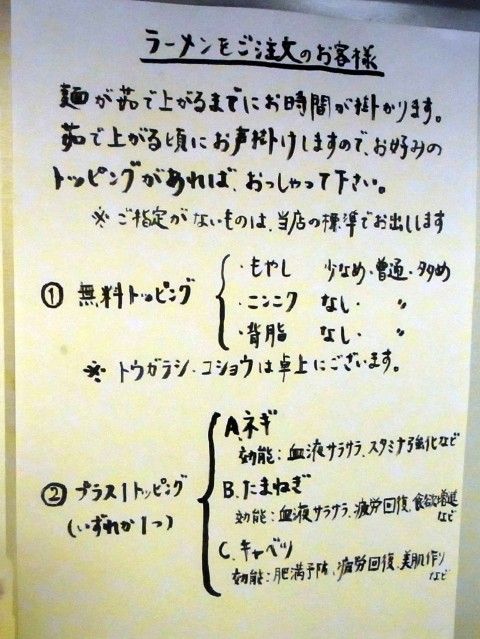 ラーメンをご注文のお客様
麺が茹で上がるまでにお時間が掛かります。
茹で上がる頃にお声掛けしますので、お好みの
トッピングがあれば、おっしゃって下さい。
※ ご指定がないものは、当店の標準でお出しします
① 無料トッピング
・もやし 少なめ・普通・多め
・ニンニク なし・ 〃
・背脂 なし・ 〃
※ トウガラシ・コショウは卓上にございます。
② プラス1トッピング
(いずれか1つ)
A.ネギ
効能:血液サラサラ、スタミナ強化など
B.たまねぎ
効能:血液サラサラ、疲労回復、食欲増進など
C.キャベツ
効能:肥満予防、疲労回復、美肌作りなど